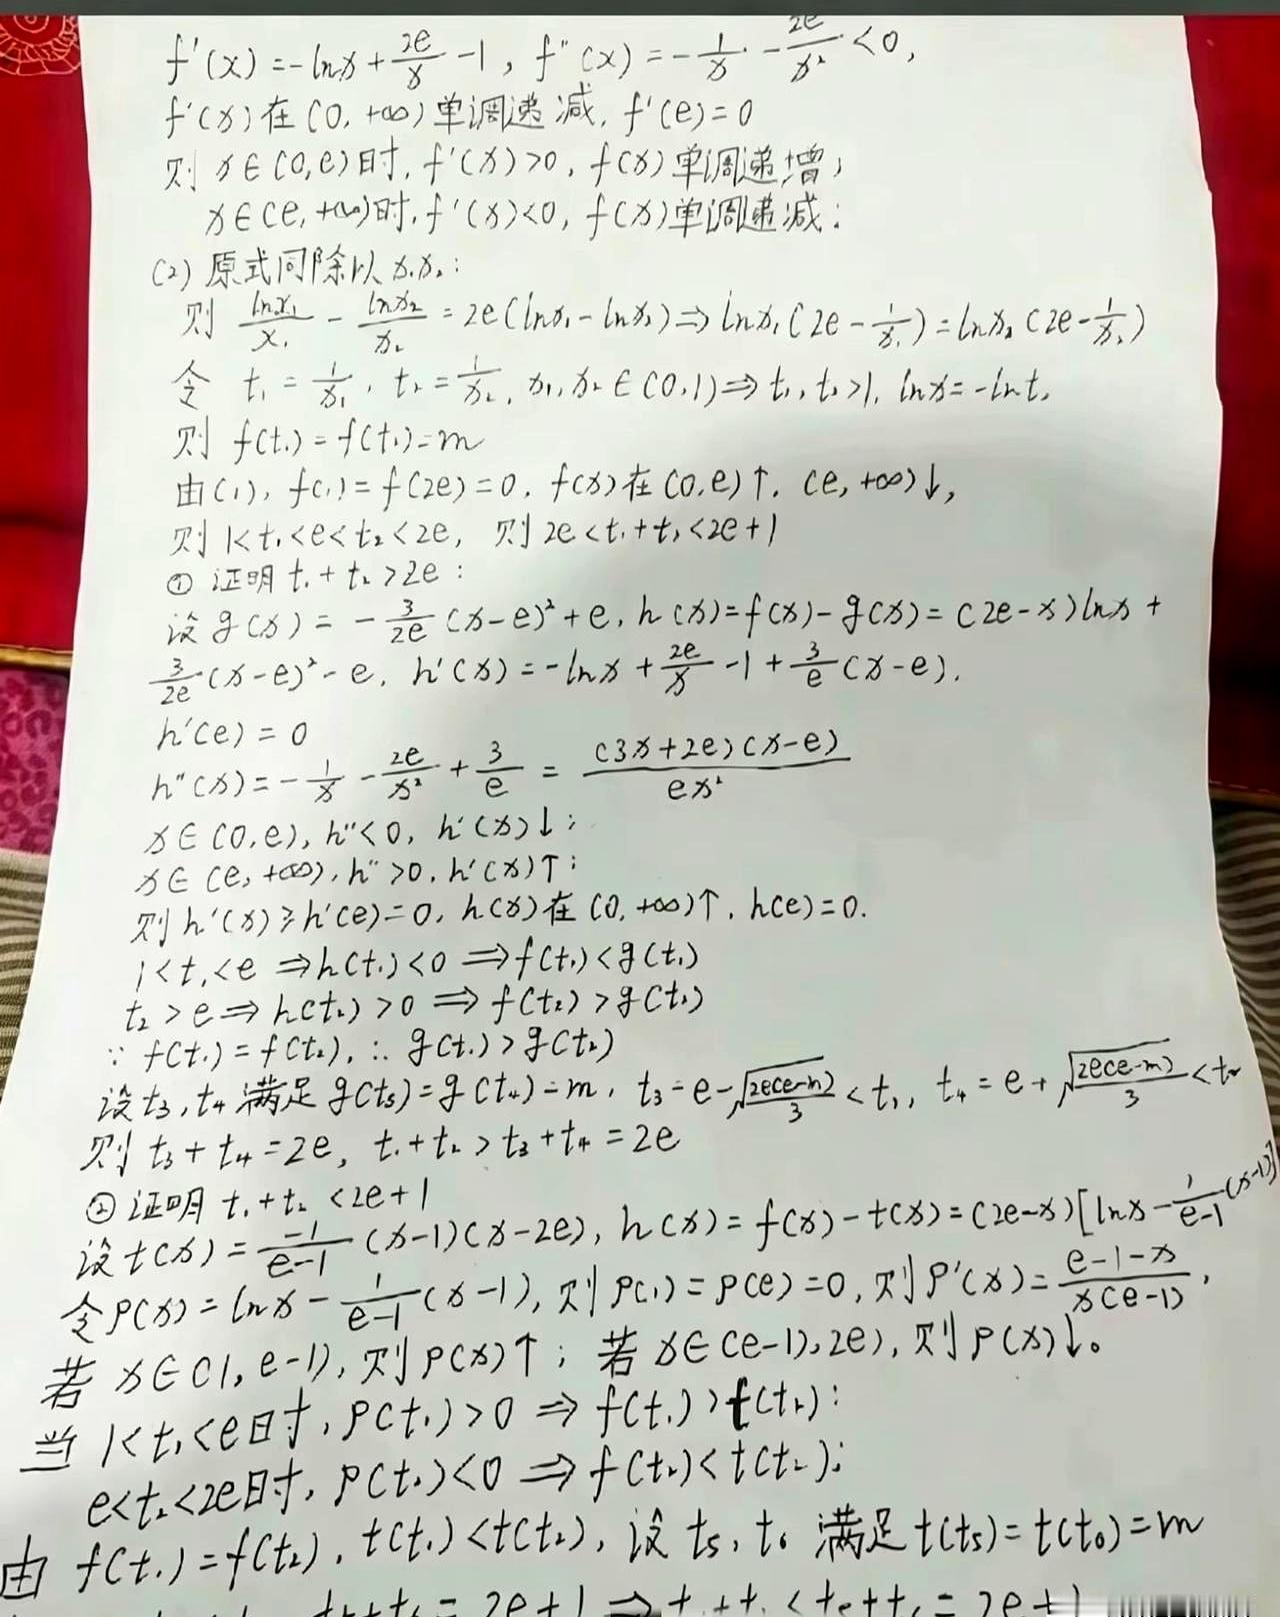 f'(x)=-lnx+2e/x-1, f''(x)=-1/x-2e/x²<0,
f'(x)在(0,+∞)单调递减, f'(e)=0
则 x∈(0,e)时, f'(x)>0, f(x)单调递增;
x∈(e,+∞)时, f'(x)<0, f(x)单调递减;
(2) 原式同除以x₁x₂:
则 lnx₁/x₁ - lnx₂/x₂ = 2e(lnx₁-lnx₂)⇒lnx₁(2e-1/x₁)=lnx₂(2e-1/x₂)
令 t₁=1/x₁, t₂=1/x₂, x₁,x₂∈(0,1)⇒t₁,t₂>1, lnx=-lnt,
则 f(t₁)=f(t₂)=m
由(1), f(1)=f(2e)=0, f(x)在(0,e)↑, (e,+∞)↓,
则 1<t₁<e<t₂<2e, 则 2e<t₁+t₂<2e+1
① 证明 t₁+t₂>2e:
设 g(x)=-3/2e(x-e)²+e, h(x)=f(x)-g(x)=(2e-x)lnx+
3/2e(x-e)²-e, h'(x)=-lnx+2e/x-1+3/e(x-e).
h'(e)=0
h''(x)=-1/x-2e/x²+3/e=(3x+2e)(x-e)/ex²
x∈(0,e), h''<0, h'(x)↓;
x∈(e,+∞), h''>0, h'(x)↑;
则 h'(x)≥h'(e)=0, h(x)在(0,+∞)↑, h(e)=0.
1<t₁<e⇒h(t₁)<0⇒f(t₁)<g(t₁)
t₂>e⇒h(t₂)>0⇒f(t₂)>g(t₂)
∵ f(t₁)=f(t₂), ∴ g(t₁)>g(t₂)
设 t₃,t₄ 满足 g(t₃)=g(t₄)=m, t₃=e-√(2e(e-m)/3)<t₁, t₄=e+√(2e(e-m)/3)<t₂
则 t₃+t₄=2e, t₁+t₂>t₃+t₄=2e
② 证明 t₁+t₂<2e+1
设 t(x)=-1/(e-1)(x-1)(x-2e), h(x)=f(x)-t(x)=(2e-x)[lnx-1/(e-1)(x-1)]
令 p(x)=lnx-1/(e-1)(x-1), 则 p(1)=p(e)=0, 则 p'(x)=(e-1-x)/x(e-1),
若 x∈(1,e-1), 则 p(x)↑; 若 x∈(e-1),2e), 则 p(x)↓。
当 1<t₁<e时, p(t₁)>0⇒f(t₁)>t(t₁):
e<t₂<2e时, p(t₂)<0⇒f(t₂)<t(t₂);
由 f(t₁)=f(t₂), t(t₁)<t(t₂), 设 t₅,t₆ 满足 t(t₅)=t(t₆)=m
t₅+t₆=2e+1⇒t₁+t₂<t₅+t₆=2e+1